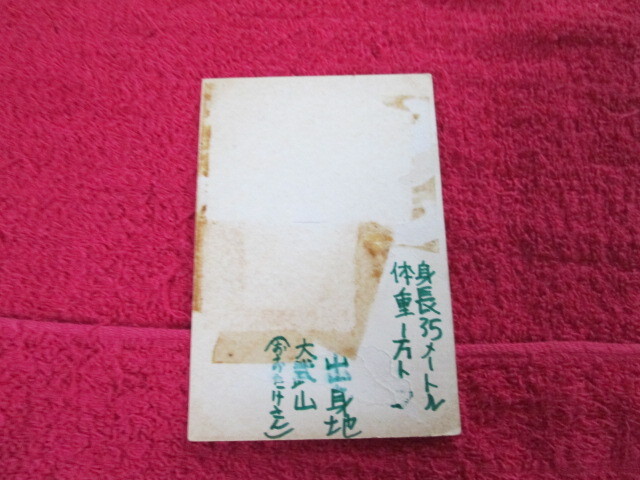 身長35メートル
体重1万トン
出身地
大武山
(おおたけさん)